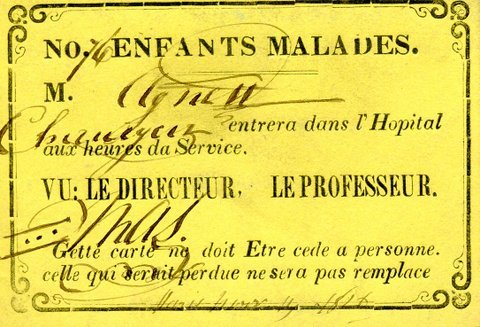 NO. 76 ENFANTS MALADES.
M. Agnew
entrera dans l'Hopital
aux heures da Service.
VU: LE DIRECTEUR, LE PROFESSEUR.
Gette carte no doit Etre cede a personne.
celle qui serait perdue ne sera pas remplace